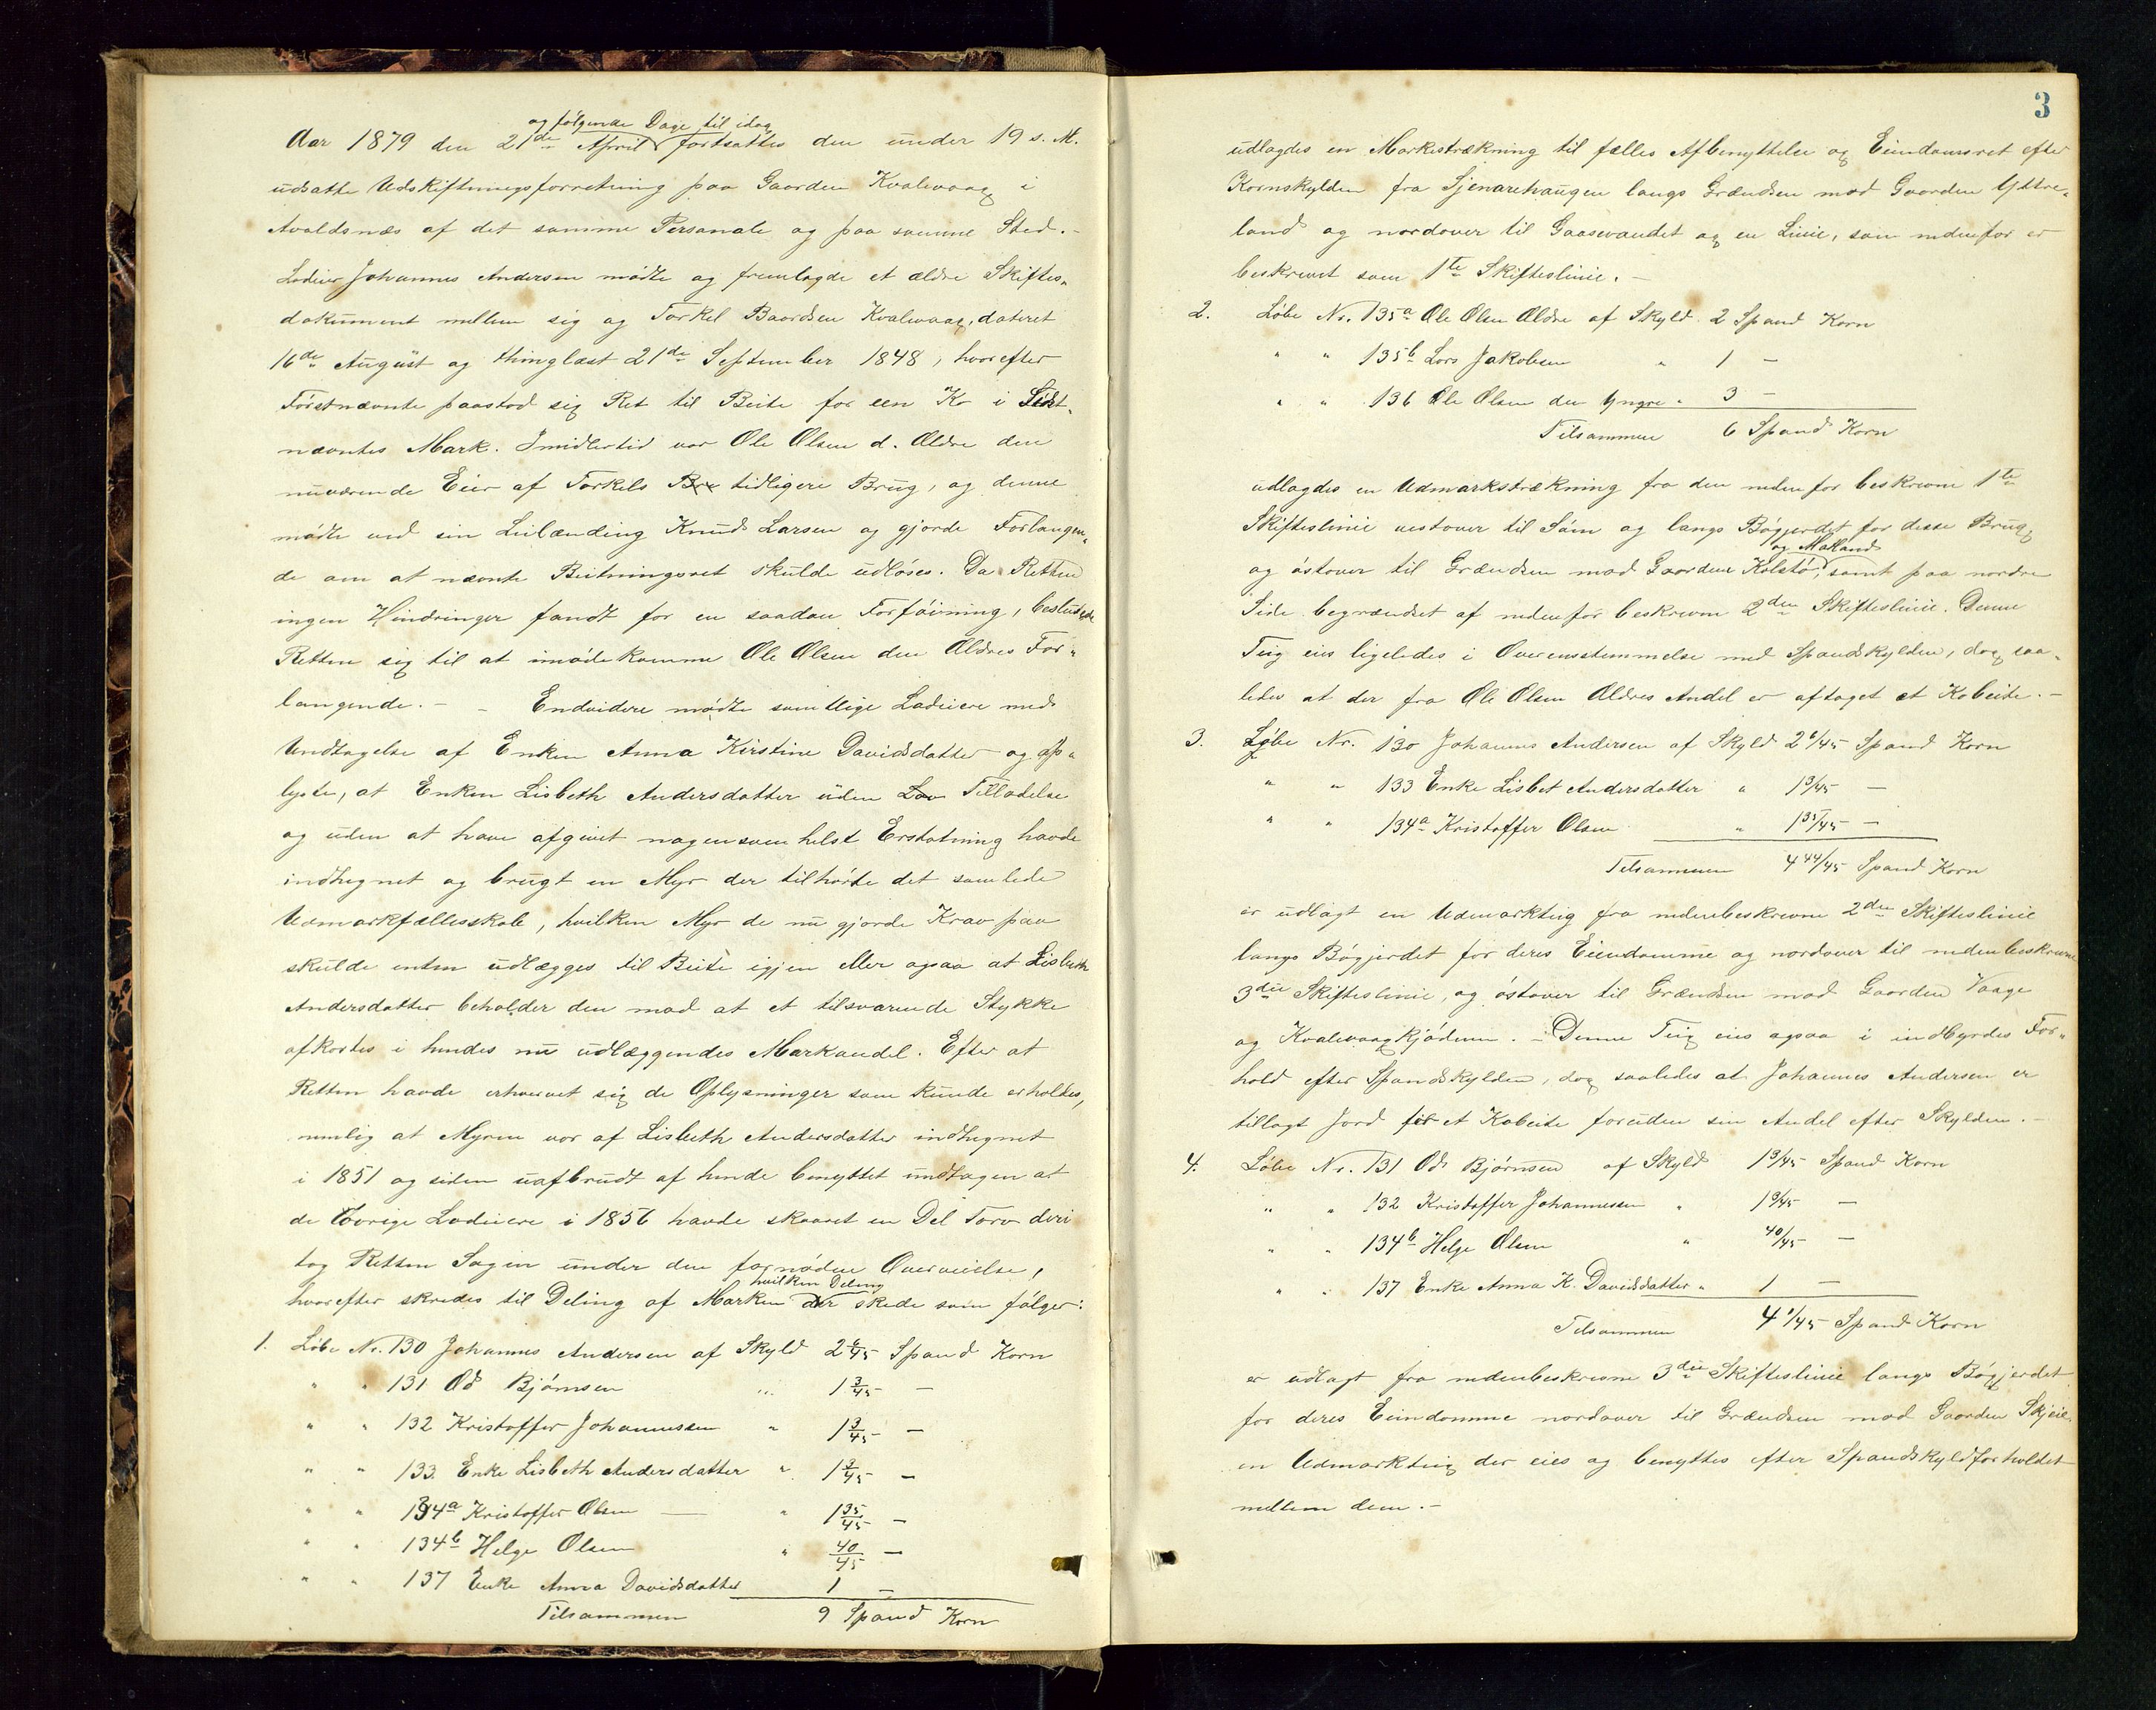 og følgende Dage til idag
Aar 1879 den 21de April fortsattes den under 19 s. M.
udsatte Udskiftningsforretning paa Gaarden Kvalevaag i
Avaldsnæs af det samme Personale og paa samme Sted.-
Lodeier Johannes Andersen mødte og fremlagde et ældre Skiftes-
dokument mellem sig og Torkel Baardsen Kvalevaag, dateret
16de August og thinglæst 21de September 1848, hvorefter
Førstnævnte paastod sig Ret til Beite for een Ko i Sidst-
nævntes Mark. Imidlertid var Ole Olsen d. Ældre den
nuværende Eier af Torkels Bru tidligere Brug, og denne
mødte ved sin Leilænding Knud Larsen og gjorde Forlangen-
de om at nævnte Beitningsret skulde udløses. Da Retten
ingen Hindringer fandt for en saadan Forføining, besluttede
Retten sig til at imødekomme Ole Olsen den Ældres For-
langende.- - Endvidere mødte samtlige Lodeiere med
Undtagelse af Enken Anna Kirstine Davidsdatter og op-
lyste, at Enken Lisbeth Andersdatter uden Lov Tilladelse
og uden at have afgivet nogensomhelst Erstatning havde
indhegnet og brugt en Myr der tilhørte det samlede
Udmarkfællesskab, hvilken Myr de nu gjorde Krav paa
skulde enten udlægges til Beite igjen eller ogsaa at Lisbeth
Andersdatter beholder den mod at et tilsvarende Stykke
afkortes i hendes nu udlæggendes Markandel. Efter at
Retten havde erhvervet sig de Oplysninger som kunde erholdes,
nemlig at Myren var af Lisbeth Andersdatter indhegnet
i 1851 og siden uafbrudt af hende benyttet undtagen at
de Øvrige Lodeiere i 1856 havde skaaret en Del Torv deri
tog Retten Sagen under den fornødne Overveielse,
hvilken Deling
hvorefter skredes til Deling af Marken der skede som følger:
1. Løbe Nr. 130 Johannes Andersen af Skyld 2 6/45 Spand Korn
" " 131 Od Bjørnsen " 1 3/45 -
" " 132 Kristoffer Johannessen " 1 3/45 -
" " 133. Enke Lisbeth Andersdatter " 1 3/45 -
" " 134a Kristoffer Olsen - " 1 35/45 -
" " 134b Helge Olsen " 40/45 -
" " 137 Enke Anna Davidsdatter 1 -
Tilsammen 9 Spand Korn
3
udlagdes en Markestrækning til fælles Afbenyttelse og Eiendomsret efter
Kornskylden fra Sjenarehaugen langs Grændsen mod Gaarden Yttre-
land og nordover til Gaasevandet og en Linie, som nedenfor er
beskrevet som 1te Skifteslinie.-
2. Løbe Nr. 135a Ole Olsen Ældre af Skyld 2 Spand Korn
" " 135b Lars Jakobsen " 1 -
" " 136 Ole Olsen den Yngre " 3 -
Tilsammen 6 Spand Korn
udlagdes en Udmarkstrækning fra den nedenfor beskrevne 1te
Skifteslinie vestover til Søen og langs Bøgjerdet for disse Brug
og Møkland
og østover til Grændsen mod Gaarden Kolstø, samt paa nordre
Side begrændset af nedenfor beskrevne 2den Skifteslinie. Denne
Teig eies ligeledes i Overensstemmelse med Spandskylden, dog saa-
ledes at der fra Ole Olsen Ældres Andel er aftaget et Kobeite.-
3. Løbe Nr. 130 Johannes Andersen af Skyld 2 6/45 Spand Korn
" " 133 Enke Lisbet Andersdatter " 1 3/45 -
" " 134a Kristoffer Olsen " 1 35/45 -
Tilsammen 4 44/45 Spand Korn
er udlagt en Udmarkteig fra nedenbeskrevne 2den Skifteslinie
langs Bøgjerdet for deres Eiendomme og nordover til nedenbeskrevne
3die Skifteslinie, og østover til Grændsen mod Gaarden Vaage
og Kvalevaagkjødnen.- Denne Teig eies ogsaa i indbyrdes For-
hold efter Spandskylden, dog saaledes at Johannes Andersen er
tillagt Jord for et Kobeite foruden sin Andel efter Skylden.-
4. Løbe Nr. 131 Od Bjørnsen af Skyld 1 3/45 Spand Korn
" " 132 Kristoffer Johannessen " 1 3/45 -
" " 134b Helge Olsen " 40/45 -
" " 137 Enke Anna K. Davidsdatter " 1 -
Tilsammen 4 1/45 Spand Korn
er udlagt fra nedenbeskrevne 3die Skifteslinie langs Bøgjerdet
for deres Eiendomme nordover til Grændsen mod Gaarden Skjeie
en Udmarkteig der eies og benyttes efter Spandskyldforholdet
mellem dem.-